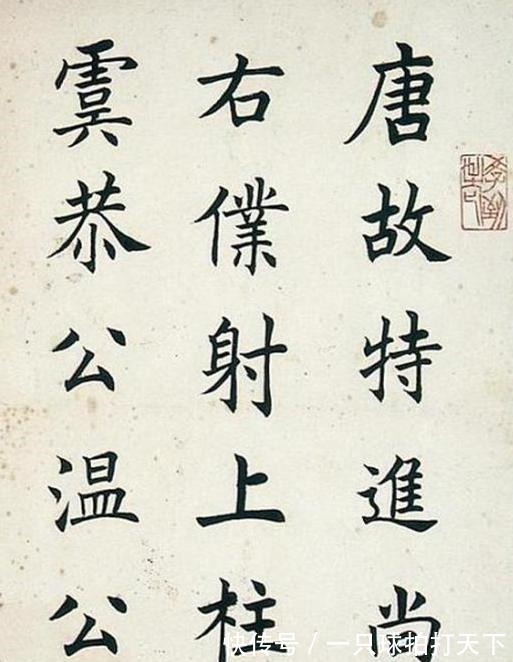 唐故特進尚
右僕射上柱
虞恭公温公
快传号/一只球拍打天下